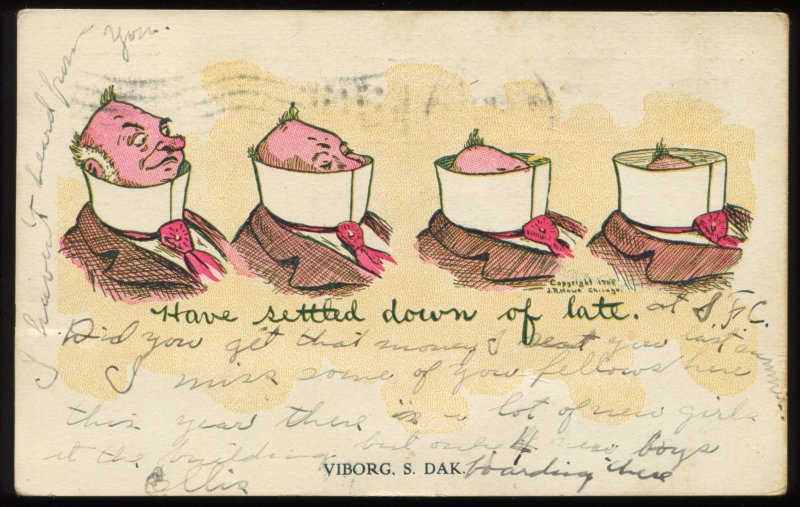 I haven't heard from
you.
Copyright 1908
J.R. Hawa Chicago.
Have settled down of late. at S.F.C.
Did you get that money I sent you last summer.
I miss some of you fellows here
this year there is a lot of new girls
at the building but only 4 new boys
VIBORG, S. DAK. boarding here
Ellis